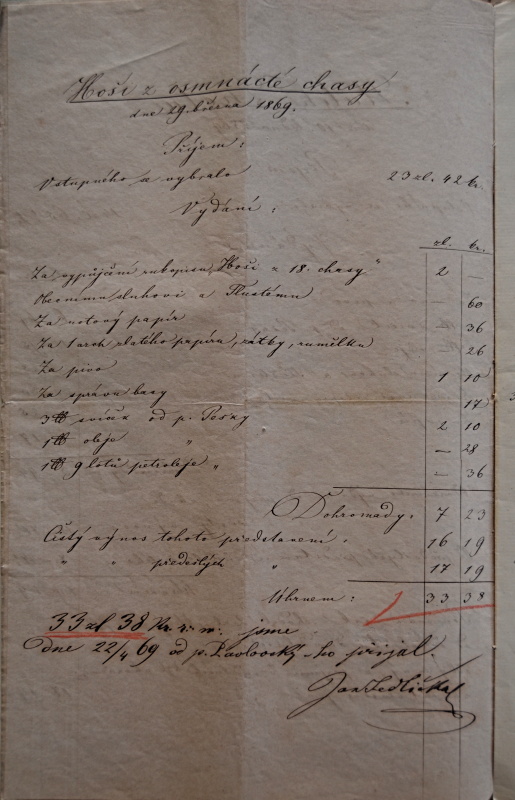 Hoši z osmnácté chasy
dne 29. března 1869.
Příjem:
Vstupného se vybralo 23 zl. 42 kr.
Vydání:
zl. kr.
Za vypůjčení rukopisu „Hoši z 18. chasy" 2 —
Obecnímu sluhovi a Tlustému — 60
Za notový papír — 36
Za 1 arch zlatého papíru, zátky, rumělku — 26
Za pivo 1 10
Za správu basy — 17
3 ℔ svíček od p. Peszy 2 10
1 ℔ oleje „ — 28
1 ℔ 9 lotů petroleje „ — 36
Dohromady: 7 23
Čistý výnos tohoto představení: 16 19
„ „ předešlých „ 17 19
Úhrnem: 33 38
33 zl 38 kr. r. m. jsme
dne 22/4 69 od p. Pavlovský-ho přijal.
Jan Jedlička